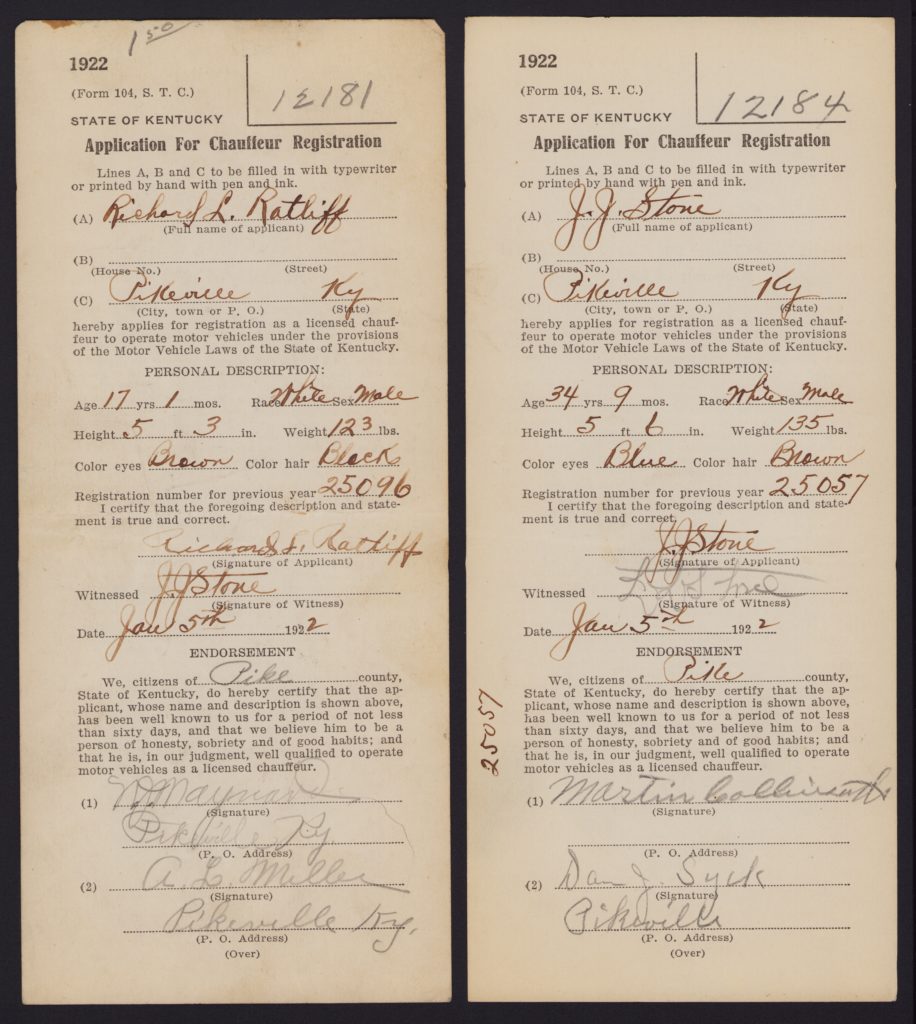 1 50
1922
(Form 104, S. T. C.)
12181
STATE OF KENTUCKY
Application For Chauffeur Registration
Lines A, B and C to be filled in with typewriter
or printed by hand with pen and ink.
(A) Richard L. Ratliff
(Full name of applicant)
(B)
(House No.) (Street)
(C) Pikeville Ky
(City, town or P. O.) (State)
hereby applies for registration as a licensed chauf-
feur to operate motor vehicles under the provisions
of the Motor Vehicle Laws of the State of Kentucky.
PERSONAL DESCRIPTION:
Age 17 yrs 1 mos. Race White Sex Male
Height 5 ft 3 in. Weight 123 lbs.
Color eyes Brown Color hair Black
Registration number for previous year 25096
I certify that the foregoing description and state-
ment is true and correct.
Richard L. Ratliff
(Signature of Applicant)
Witnessed J.J Stone
(Signature of Witness)
Date Jan 5th 1922
ENDORSEMENT
We, citizens of Pike county,
State of Kentucky, do hereby certify that the ap-
plicant, whose name and description is shown above,
has been well known to us for a period of not less
than sixty days, and that we believe him to be a
person of honesty, sobriety and of good habits; and
that he is, in our judgment, well qualified to operate
motor vehicles as a licensed chauffeur.
(1) Maynard
(Signature)
Pikeville Ky
(P. O. Address)
(2) A. L. Miller
(Signature)
Pikeville Ky.
(P. O. Address)
(Over)
1922
(Form 104, S. T. C.)
12184
STATE OF KENTUCKY
Application For Chauffeur Registration
Lines A, B and C to be filled in with typewriter
or printed by hand with pen and ink.
(A) J. J. Stone
(Full name of applicant)
(B)
(House No.) (Street)
(C) Pikeville Ky
(City, town or P. O.) (State)
hereby applies for registration as a licensed chauf-
feur to operate motor vehicles under the provisions
of the Motor Vehicle Laws of the State of Kentucky.
PERSONAL DESCRIPTION:
Age 34 yrs 9 mos. Race White Sex Male
Height 5 ft 6 in. Weight 135 lbs.
Color eyes Blue Color hair Brown
Registration number for previous year 25057
I certify that the foregoing description and state-
ment is true and correct.
J.J Stone
(Signature of Applicant)
Witnessed
(Signature of Witness)
Date Jan 5th 1922
ENDORSEMENT
We, citizens of Pike county,
State of Kentucky, do hereby certify that the ap-
plicant, whose name and description is shown above,
has been well known to us for a period of not less
than sixty days, and that we believe him to be a
person of honesty, sobriety and of good habits; and
that he is, in our judgment, well qualified to operate
motor vehicles as a licensed chauffeur.
25057
(1) Martin
(Signature)
(P. O. Address)
(2) Dan J. Syck
(Signature)
Pikeville
(P. O. Address)
(Over)